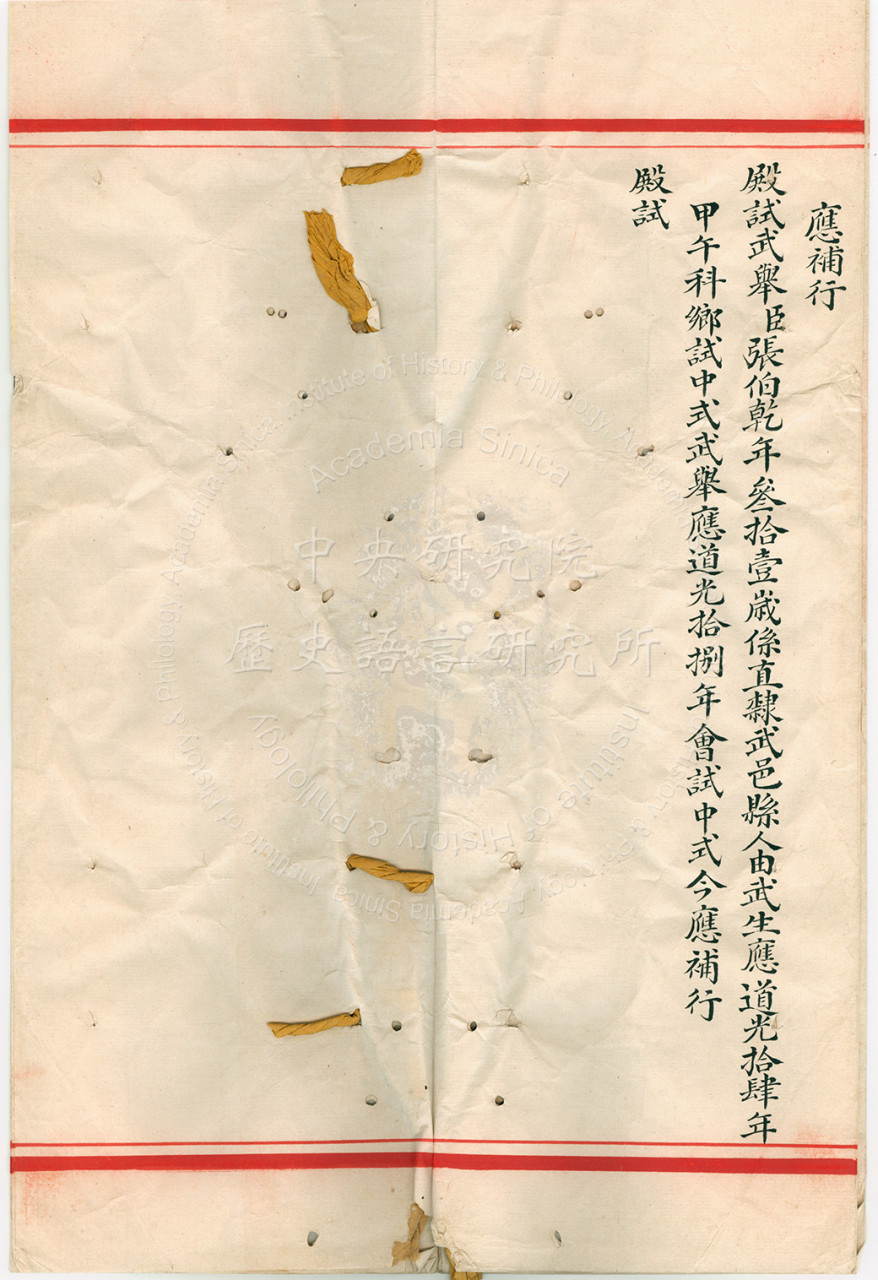 應補行
殿試武舉臣張伯乾年叄拾壹歲係直隸武邑縣人由武生應道光拾肆年
甲午科鄉試中式武舉應道光拾捌年會試中式今應補行
殿試
中央研究院
歷史語言研究所
Academia Sinica
Institute of History & Philology Academia Sinica Institute of History & Philology Academia Sinica Institute of History & Philology